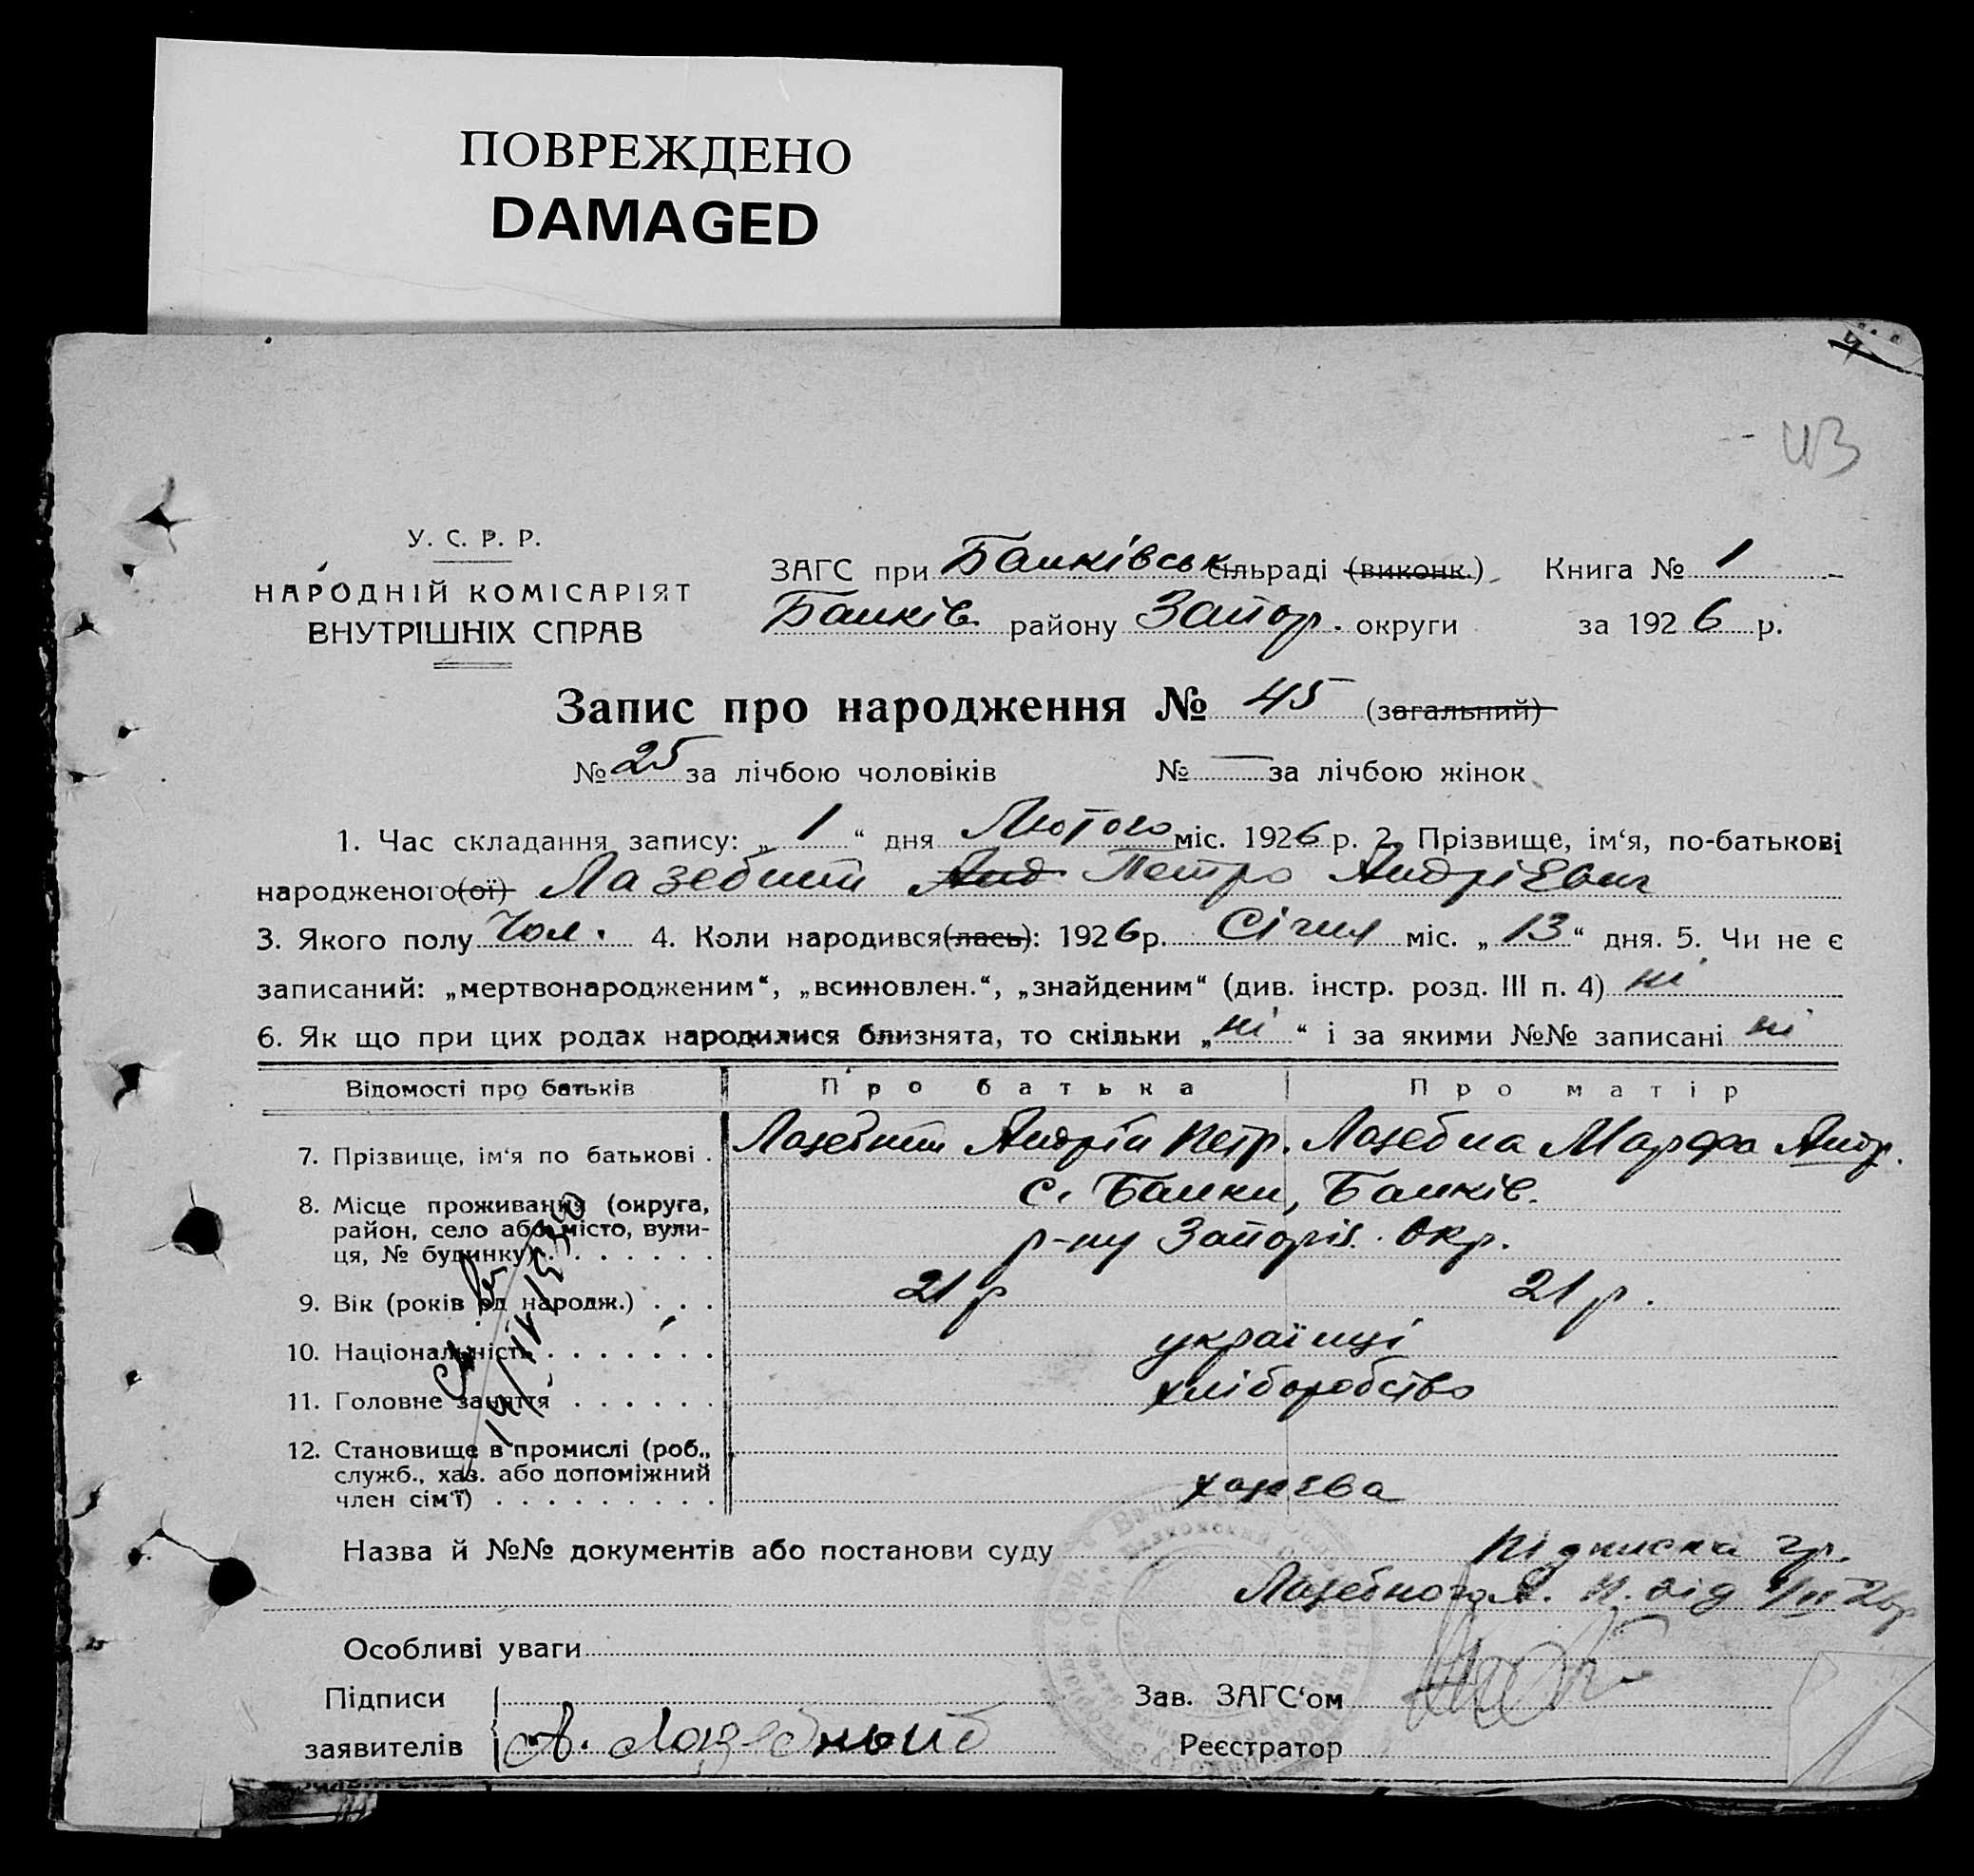 ПОВРЕЖДЕНО
DAMAGED
43
У. С. Р. Р.
НАРОДНІЙ КОМІСАРІЯТ
ВНУТРІШНІХ СПРАВ
ЗАГС при Балківськ сільраді (виконк.) Книга № 1
Балків. району Запор. округи за 1926 р.
Запис про народження № 45 (загальний)
№ 25 за лічбою чоловіків № — за лічбою жінок
1. Час складання запису: „ 1 “ дня Лютого міс. 1926 р. 2. Прізвище, ім‘я, по-батькові
народженого(ої) Лазебний Анд Петро Андрієвич
3. Якого полу Чол. 4. Коли народився(лась): 1926 р. Січня міс. „ 13 “ дня. 5. Чи не є
записаний: „мертвонародженим“, „всиновлен.“, „знайденим“ (див. інстр. розд. III п. 4) ні
6. Як що при цих родах народилися близнята, то скільки „ ні “ і за якими №№ записані ні
Відомості про батьків Про батька Про матір
7. Прізвище, ім‘я по батькові . Лазебний Андрій Петр. Лазебна Марфа Андр.
8. Місце проживання (округа, с. Балки, Балків.
район, село або місто, вули-
ця, № будинку) . . . . . . р-ну Запоріз. Окр.
9. Вік (років від народж.) . . . 21 р 21 р.
10. Національність . . . . . . . українці
11. Головне заняття . . . . . . хліборобство
12. Становище в промислі (роб.,
служб., хаз. або допоміжний
член сім‘ї) . . . . . . . . . хазяєва
Назва й №№ документів або постанови суду Підписка гр.
Лазебного А. П. від 1/II 26р
Особливі уваги
Підписи
заявителів А. Лазебный
Зав. ЗАГС‘ом
Реєстратор